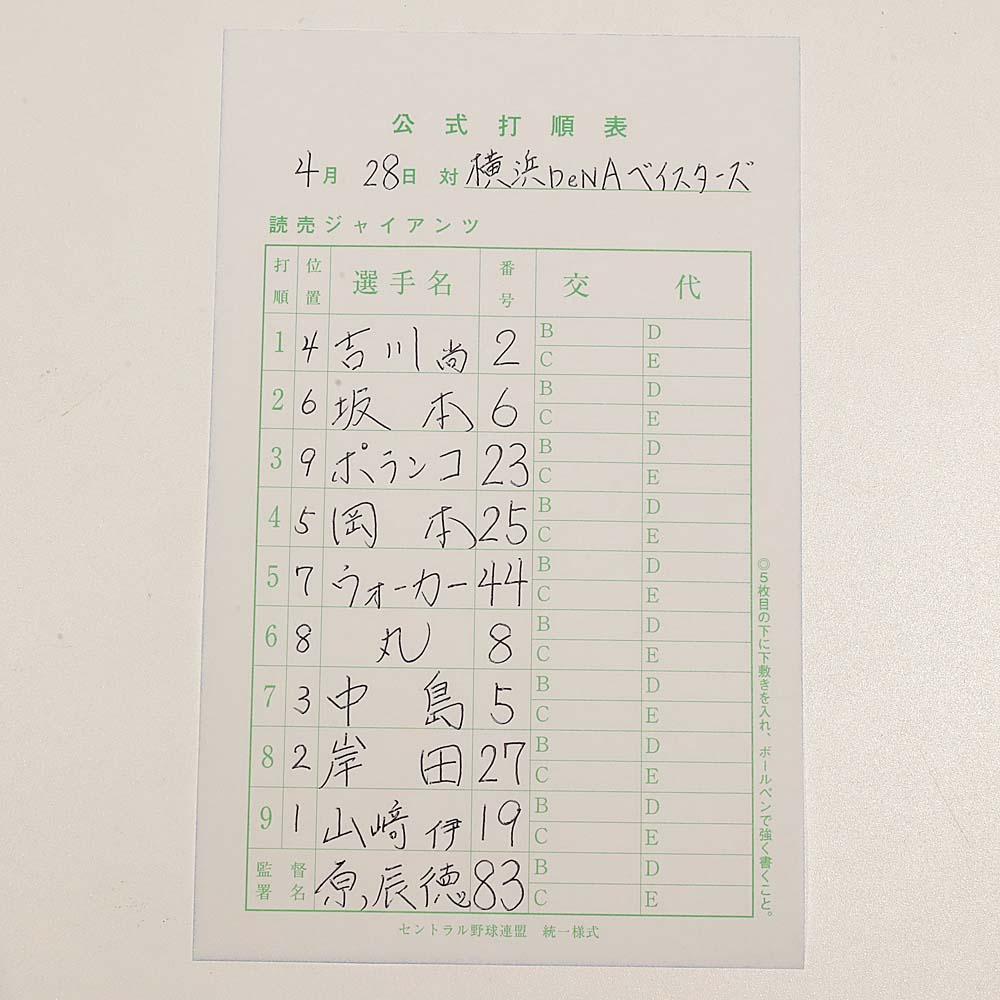 公式打順表
4月 28日 対 横浜DeNAベイスターズ
読売ジャイアンツ
打順 位置 選手名 番号 交代
1 4 吉川尚 2 B D C E
2 6 坂本 6 B D C E
3 9 ポランコ 23 B D C E
4 5 岡本 25 B D C E
5 7 ウォーカー 44 B D C E
6 8 丸 8 B D C E
7 3 中島 5 B D C E
8 2 岸田 27 B D C E
9 1 山﨑伊 19 B D C E
監督署名 原辰徳 83 B D C E
セントラル野球連盟 統一様式
◎5枚目の下に下敷きを入れ、ボールペンで強く書くこと。